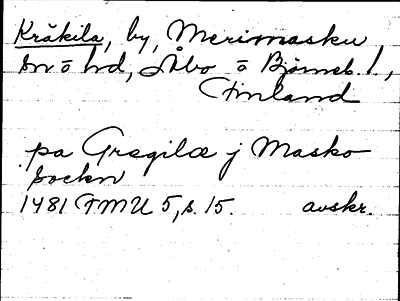 Kråkila, by, Merimasku
sn o hd, Åbo o Björneb. l.,
Finland
pa Gregilæ j Masko
sockn
1481 FMU 5, s. 15. avskr.